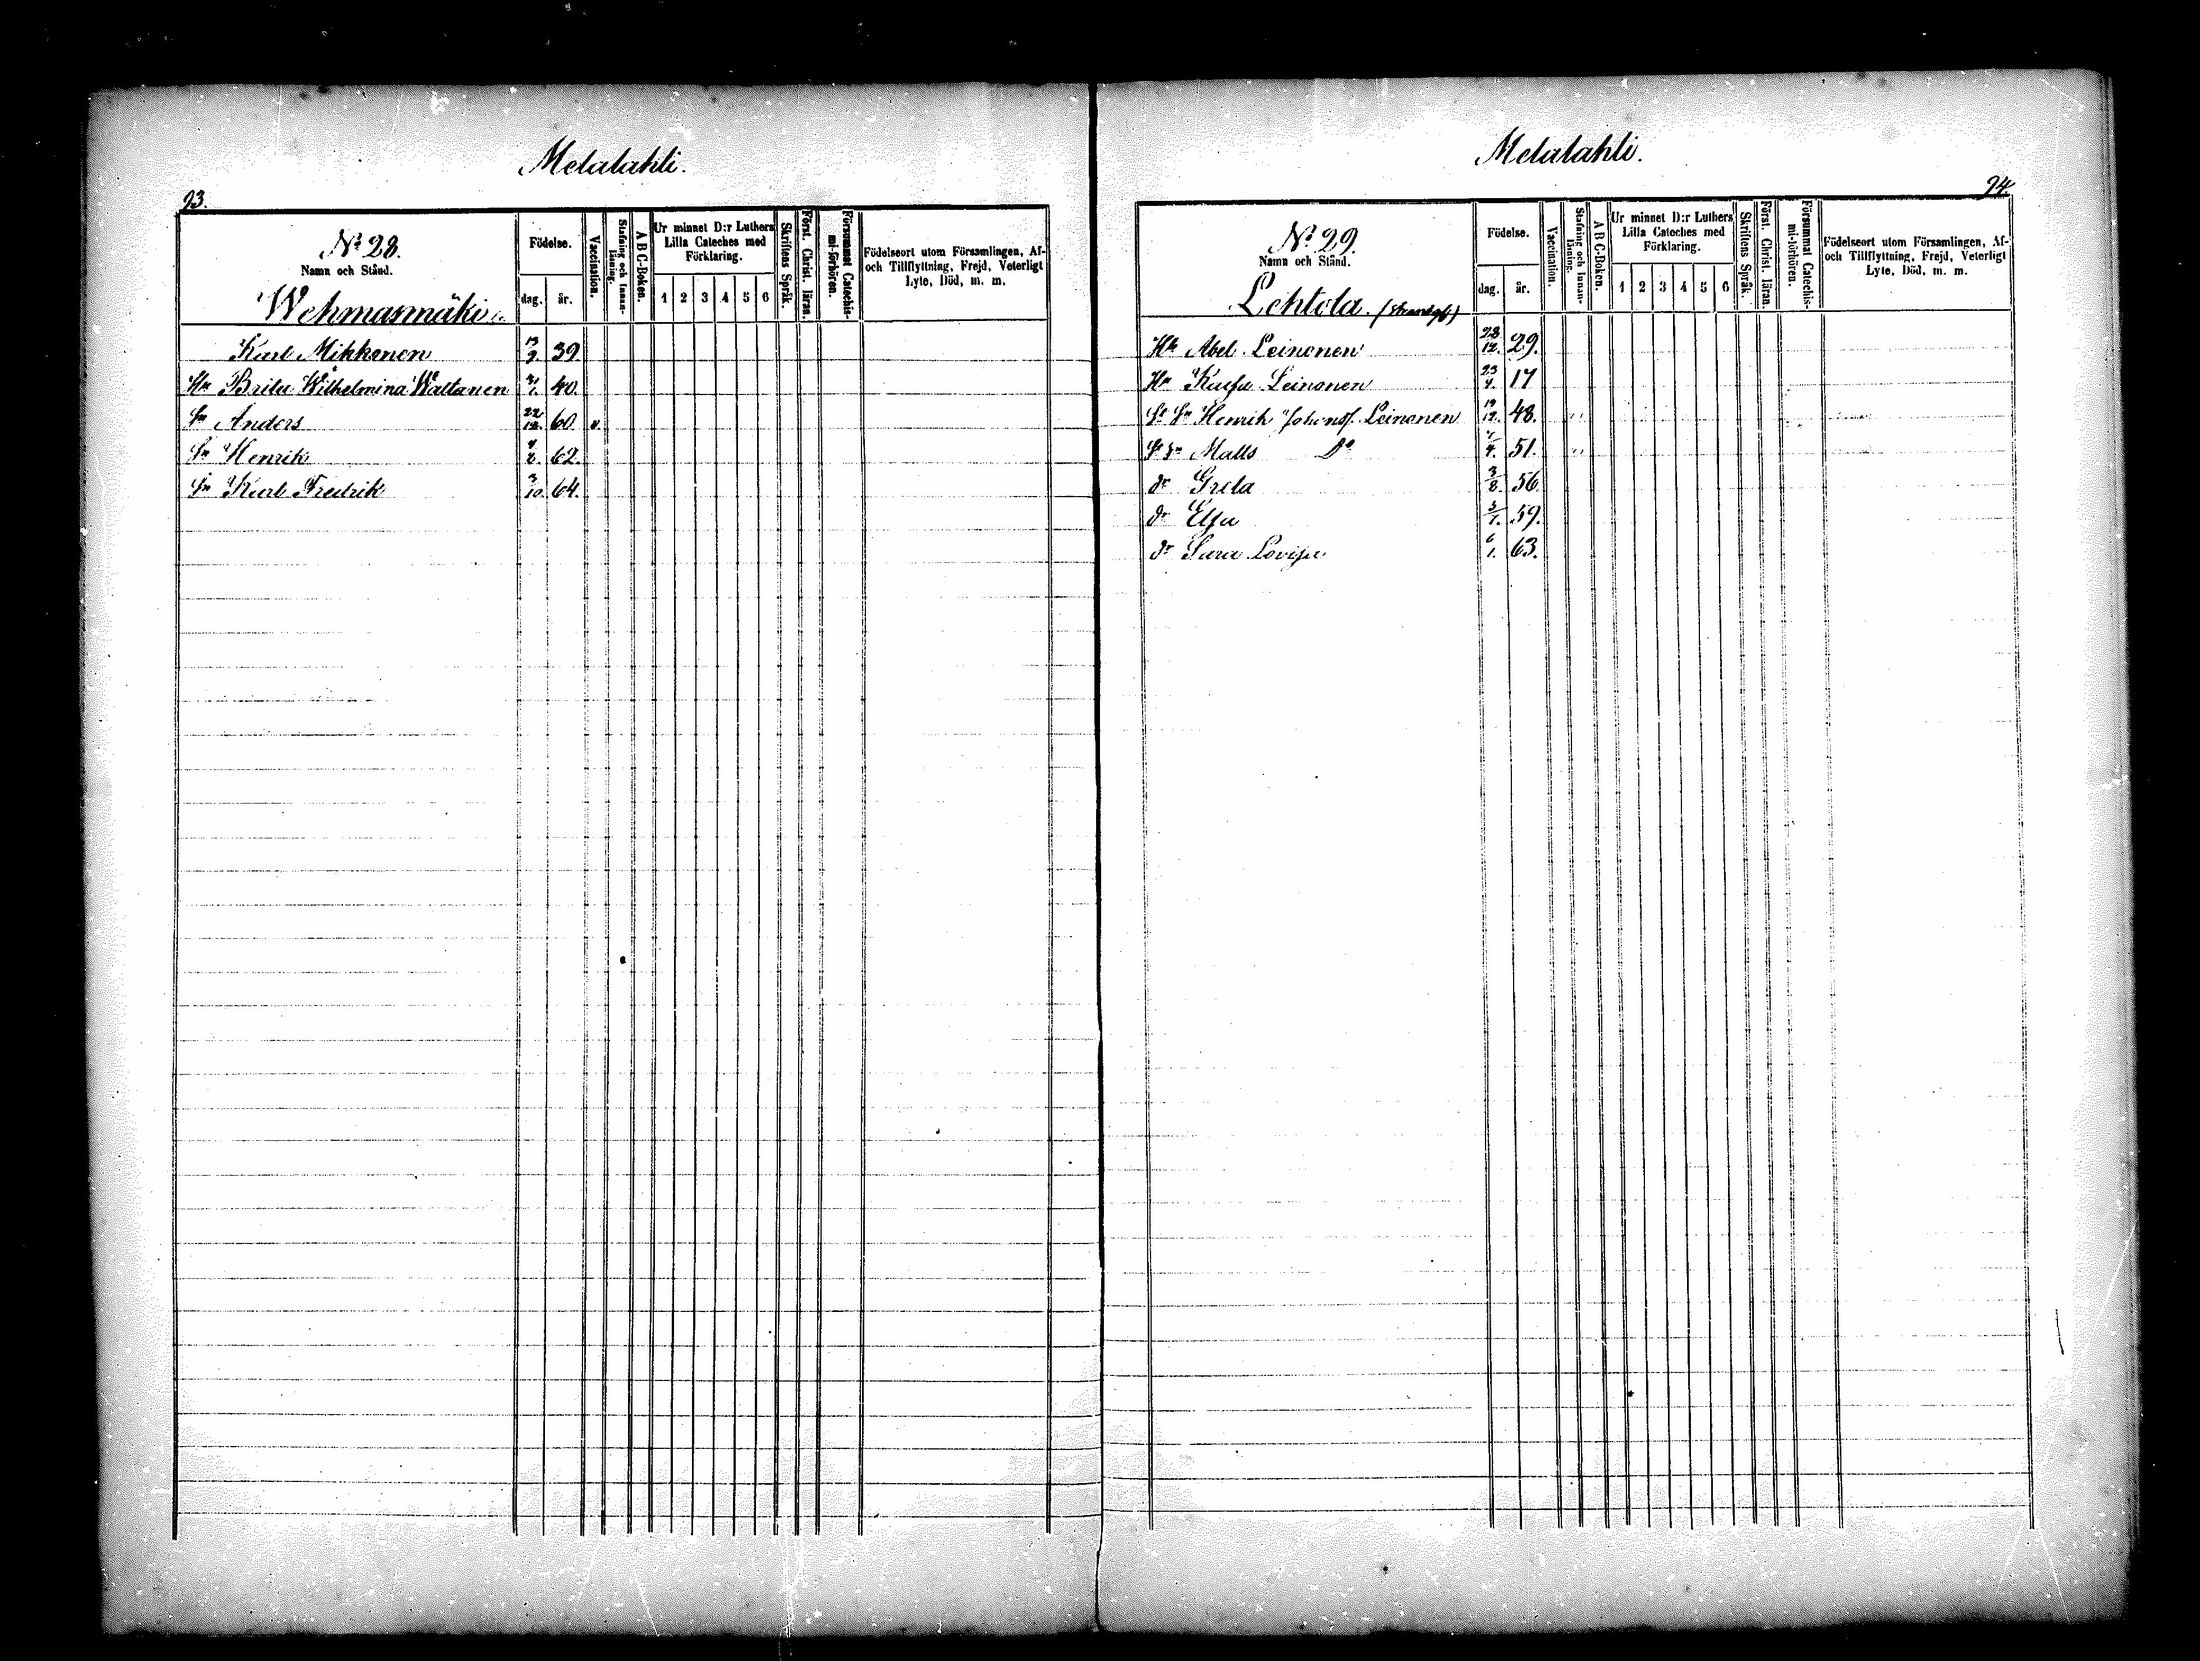 Melalahti.
93.
Nº 28.
Namn och Stånd.
Wehmasmäki
Födelse.
dag. år.
Vaccination.
Stafning och Innan-läsning.
A B C-Boken.
Ur minnet D:r Luthers
Lilla Cateches med
Förklaring.
1 2 3 4 5 6
Skriftens Språk.
Först. Christ. läran.
Försummat Catechis-mi-förhören.
Födelseort utom Församlingen, Af-
och Tillflyttning, Frejd, Veterligt
Lyte, Död, m. m.
Karl Mikkonen 13/9. 39.
Hu Brita Wilhelmina Waltanen 40.
Sn Anders 22/12. 60. v.
Sn Henrik 4/8. 62.
Sn Karl Fredrik 3/10. 64.
Melalahti.
94.
Nº 29.
Namn och Stånd.
Lehtola.
Födelse.
dag. år.
Vaccination.
Stafning och Innan-läsning.
A B C-Boken.
Ur minnet D:r Luthers
Lilla Cateches med
Förklaring.
1 2 3 4 5 6
Skriftens Språk.
Först. Christ. läran.
Försummat Catechis-mi-förhören.
Födelseort utom Församlingen, Af-
och Tillflyttning, Frejd, Veterligt
Lyte, Död, m. m.
Abel Leinonen 28/12. 29.
Hu Kaisa Leinonen 23/4. 17
Henrik Johans. Leinonen 19/12. 48.
Matts Dº 51.
dr Greta 3/8. 56.
dr Elsa 5/7. 59.
dr Sara Lovisa 6/1. 63.